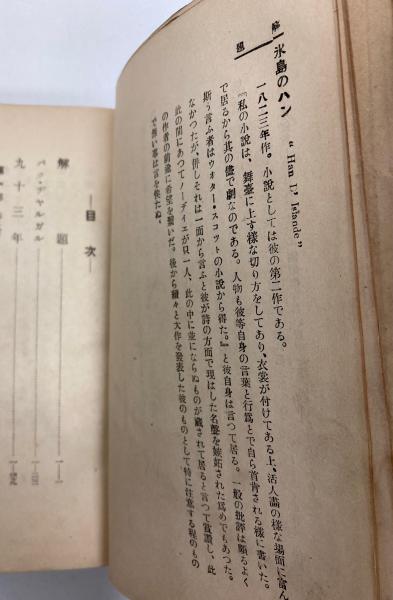 解題
氷島のハン “Han D' Islande”
一八二三年作。小説としては彼の第二作である。
『私の小説は、舞臺に上す様な切り方をしてあり、衣裳が付けてある上、活人畵の様な場面に富ん
で居るから其の儘で劇なのである。人物も彼等自身の言葉と行爲とで自ら首肯される様に書いた。
斯う言ふ者はウオター・スコツトの小説から得た。』と彼自身は言つて居る。一般の批評は頗るよく
なかつたが、併しそれは一面から言ふと彼が詩の方面で現はした名聲を嫉妬された爲めでもあつた。
此の間にあつてノーディエが只一人、此の中に並にならぬものが藏されて居ると言つて賞讃し、此
の作者の前途に希望を繋いだ。後から續々と大作を發表した彼のものとして特に注意する程のもの
で無い事は言を俟たぬ。
―目次―
解題
九十三年